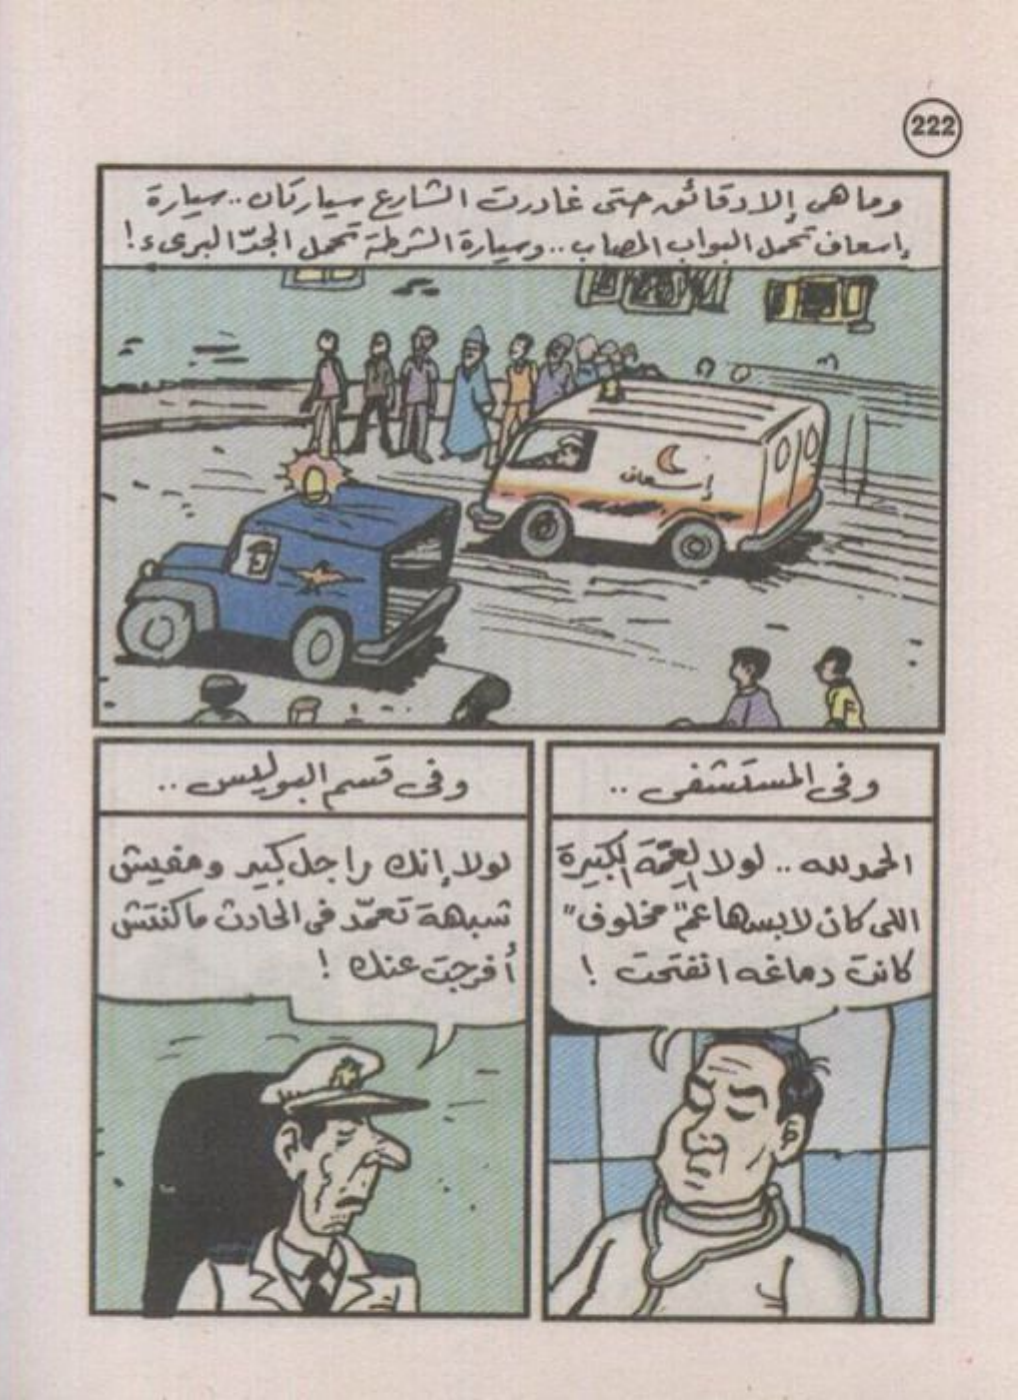 222
وما هى إلا دقائق حتى غادرت الشارع سيارتان .. سيارة
إسعاف تحمل البواب المصاب .. وسيارة الشرطة تحمل الجدّ البرىء !
إسعاف
وفى المستشفى ..
الحمد لله .. لولا العِمّة الكبيرة
اللى كان لابسها عم "مخلوف"
كانت دماغه انفتحت !
وفى قسم البوليس ..
لولا إنك راجل كبير ومفيش
شبهة تعمّد فى الحادث ما كنتش
أفرجت عنك !